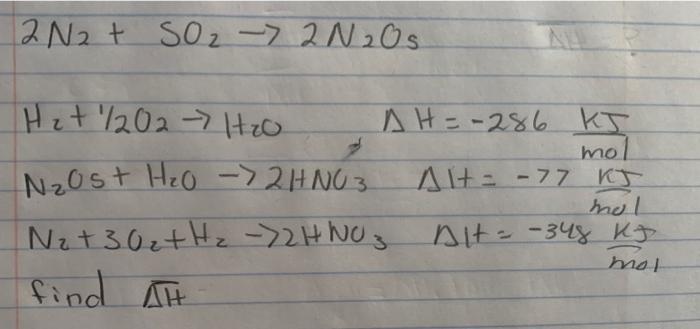 2N2 + SO2 → 2N2Os
H2 + 1/2O2 → H2O ΔH = -286 KJ/mol
N2Os + H2O → 2HNO3 ΔH = -77 KJ/mol
N2 + 3O2 + H2 → 2HNO3 ΔH = -348 KJ/mol
find ΔH